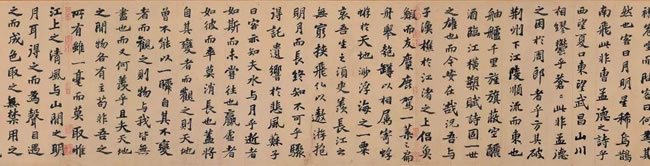 然也客曰月明星稀烏鵲
南飛此非孟德之詩乎
西望夏口東望武昌山川
相繆鬱乎蒼々此非孟德
之困於周郎者乎方其破
荊州下江陵順流而東
舳艫千里旌旗蔽空釃
酒臨江橫槊賦詩固一世
之雄也而今安在哉況吾與
子漁樵於江渚之上侶魚
鰕而友麋鹿駕一葉扁
舟舉匏樽以相屬寄蜉
蝣於天地渺浮海之一粟
哀吾生之須臾羨長江之
無窮挾飛仙以遨遊抱
明月而長終知不可乎驟
得託遺響於悲風蘇子
曰客亦知夫水與月乎逝者
如斯而未嘗往也贏虛者
如彼而卒莫消長也蓋將
自其變者而觀之則天地
曾不能以一瞬自其不變
者而觀之則物與我皆無
盡也又何羨乎且夫天地
之間物各有主苟非吾之
所有雖一毫而莫取惟
江上之清風與山間之明
月耳得之而為聲目遇
之而成色取之無禁用之